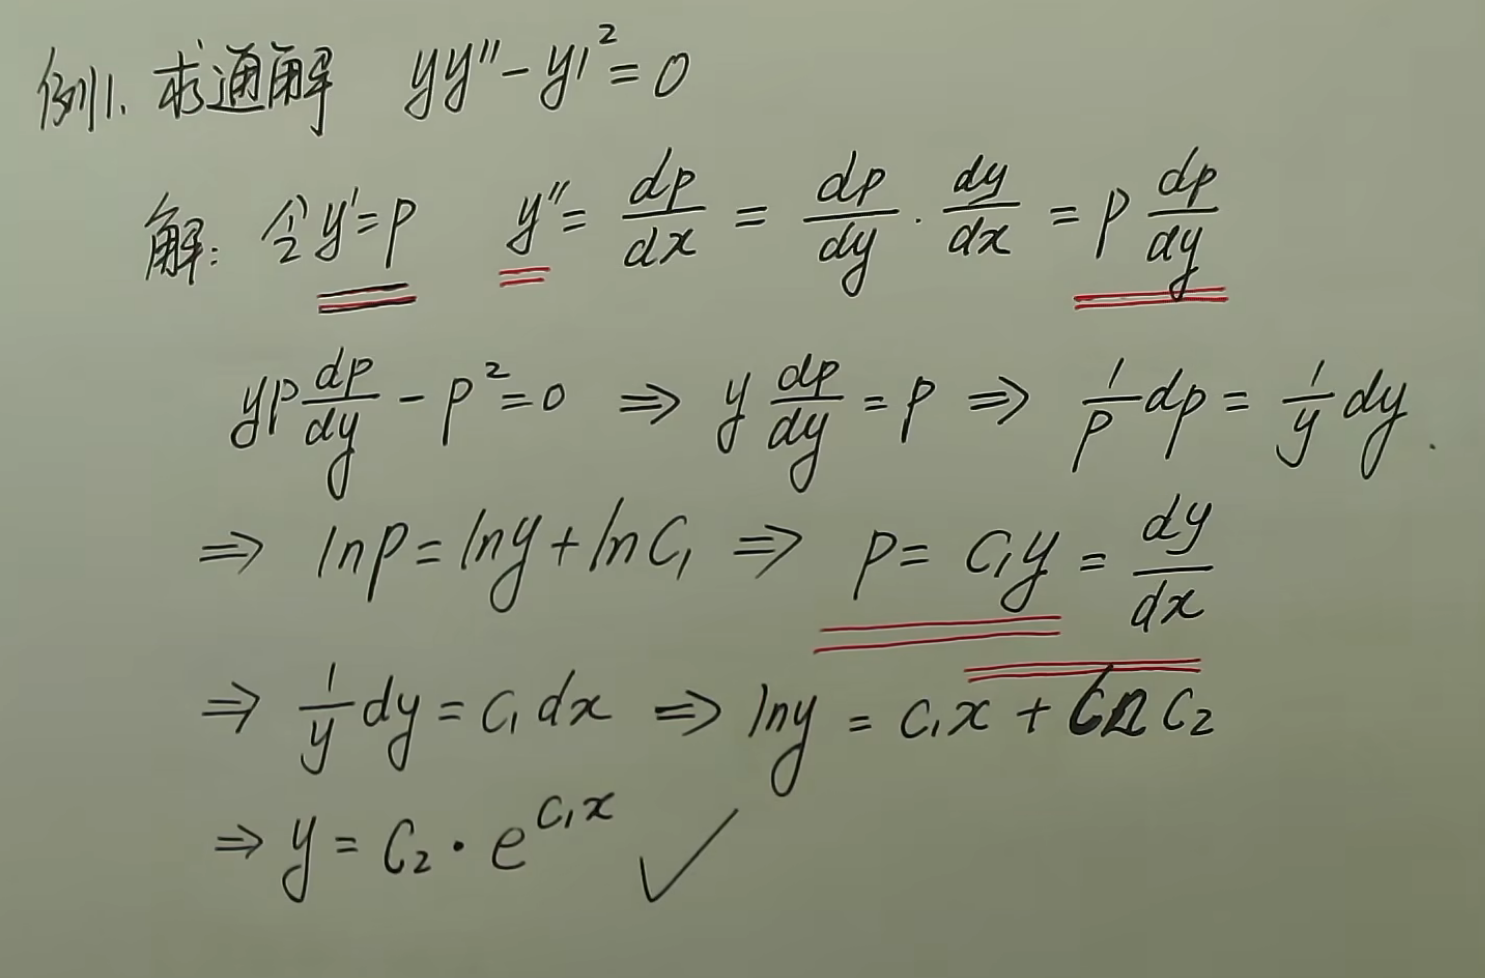 例1. 求通解 yy'' - y'² = 0
解: 令 y' = p y'' = dp/dx = dp/dy · dy/dx = p dp/dy
yp dp/dy - p² = 0 ⇒ y dp/dy = p ⇒ 1/p dp = 1/y dy.
⇒ ln p = ln y + ln C₁ ⇒ p = C₁y = dy/dx
⇒ 1/y dy = C₁ dx ⇒ ln y = C₁x + ln C₂
⇒ y = C₂ · e^{C₁x} ✓